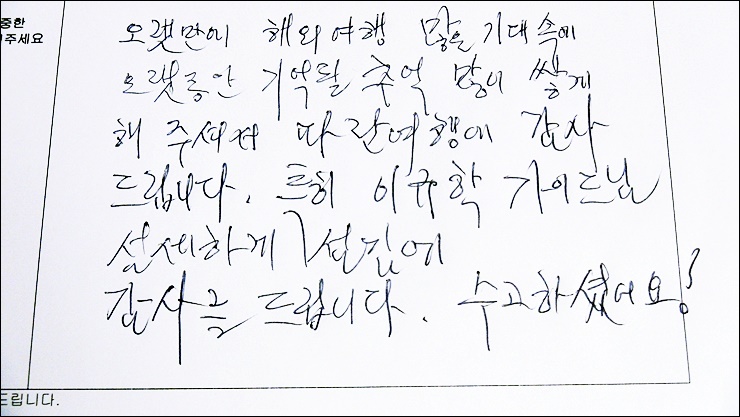 중한
주세요
오랫만에 해외여행 많은 기대속에
오랫동안 기억될 추억 많이 쌓게
해 주셔서 파란여행에 감사
드립니다. 특히 이규학 가이드님
섬세하게 섬김에
감사를 드립니다. 수고하셨어요!
드립니다.